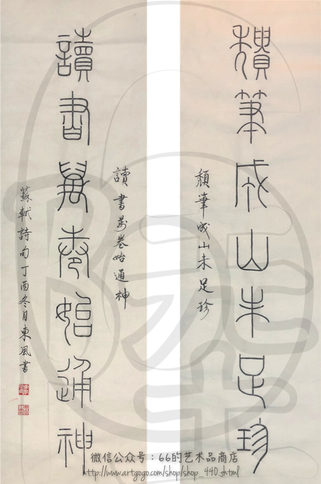 穨筆成山未足珍
頽筆成山未足珍
讀書萬卷始通神
讀書萬卷始通神
蘇軾詩句丁酉冬月東風書
微信公众号：66的艺术品商店
http://www.artgogo.com/shop/shop_440.shtml